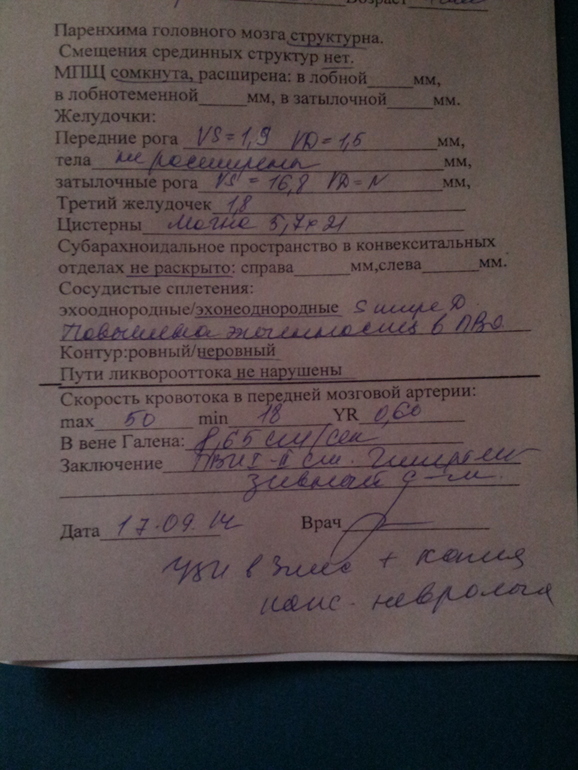 Возраст
Паренхима головного мозга структурна.
Смещения срединных структур нет.
МПЩ сомкнута, расширена: в лобной_____мм,
в лобнотеменной_____мм, в затылочной_____мм.
Желудочки:
Передние рога VS = 1,9 VD = 1,5 мм,
тела не расширены мм,
затылочные рога VS = 16,8 VD = N мм,
Третий желудочек 1,8
Цистерны Магна 5,7 × 21
Субарахноидальное пространство в конвекситальных
отделах не раскрыто: справа_____мм,слева_____мм.
Сосудистые сплетения:
эхооднородные/эхонеоднородные S шире D.
Повышена эхогенность в ПВО
Контур:ровный/неровный
Пути ликворооттока не нарушены
Скорость кровотока в передней мозговой артерии:
max 50 min 18 YR 0,60
В вене Галена: 8,65 см/сек
Заключение I-II ст. Гипертен
зивный с-м.
Дата 17.09.14 Врач
узи в 3 мес + копия
конс. невролога